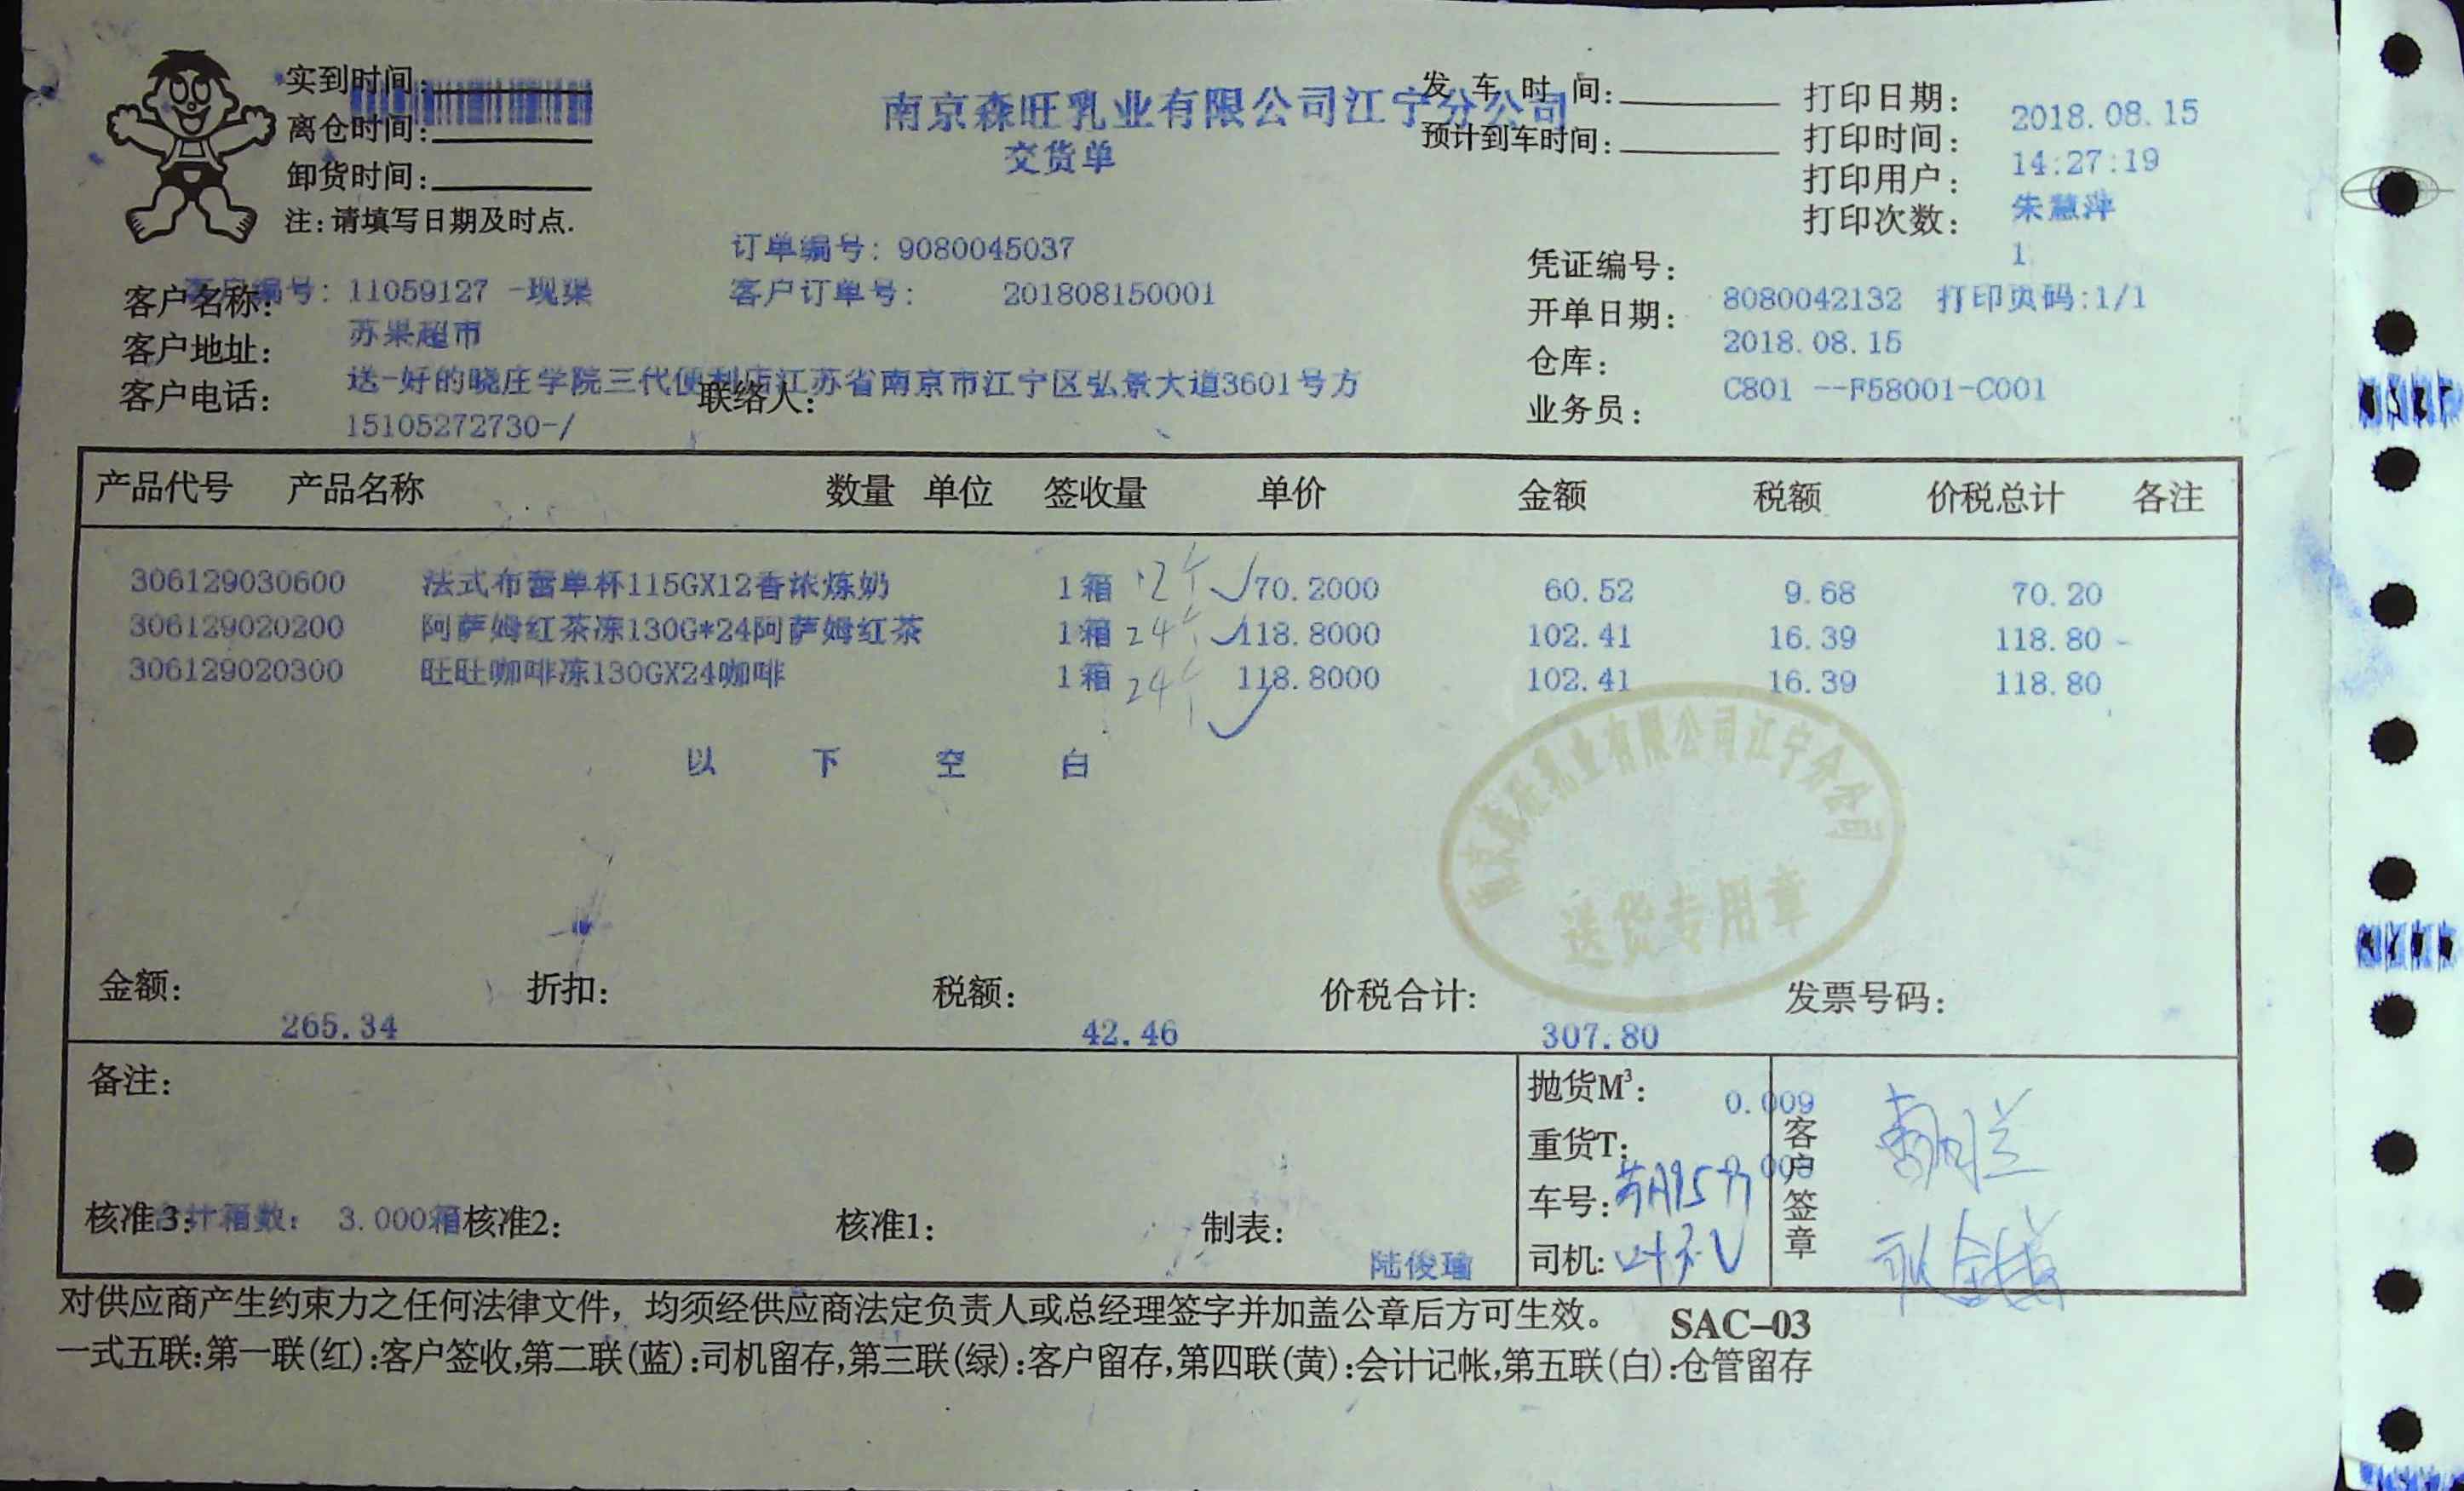 实到时间:
离仓时间:
卸货时间:
注:请填写日期及时点.
南京森旺乳业有限公司江宁分公司
交货单
发车时间:
预计到车时间:
打印日期: 2018.08.15
打印时间: 14:27:19
打印用户: 朱慧萍
打印次数: 1
订单编号: 9080045037
客户编号: 11059127 -现渠
客户订单号: 201808150001
客户名称: 苏果超市
客户地址: 送-好的晓庄学院三代便利店江苏省南京市江宁区弘景大道3601号方
客户电话: 15105272730-/
联络人:
凭证编号: 8080042132 打印页码:1/1
开单日期: 2018.08.15
仓库: C801 --F58001-C001
业务员:
产品代号 产品名称 数量 单位 签收量 单价 金额 税额 价税总计 各注
306129030600 法式布蕾单杯115GX12香浓炼奶 1 箱 12个 70.2000 60.52 9.68 70.20
306129020200 阿萨姆红茶冻130G*24阿萨姆红茶 1 箱 24个 118.8000 102.41 16.39 118.80
306129020300 旺旺咖啡冻130GX24咖啡 1 箱 24个 118.8000 102.41 16.39 118.80
以 下 空 白
南京森旺乳业有限公司江宁分公司
送货专用章
金额: 265.34 折扣: 税额: 42.46 价税合计: 307.80 发票号码:
备注:
抛货M³: 0.009
重货T:
车号:
司机:
客户签章
合计箱数: 3.000箱
核准3: 核准2: 核准1: 制表: 陆俊瑜
对供应商产生约束力之任何法律文件，均须经供应商法定负责人或总经理签字并加盖公章后方可生效。 SAC-03
一式五联:第一联(红):客户签收,第二联(蓝):司机留存,第三联(绿):客户留存,第四联(黄):会计记帐,第五联(白):仓管留存